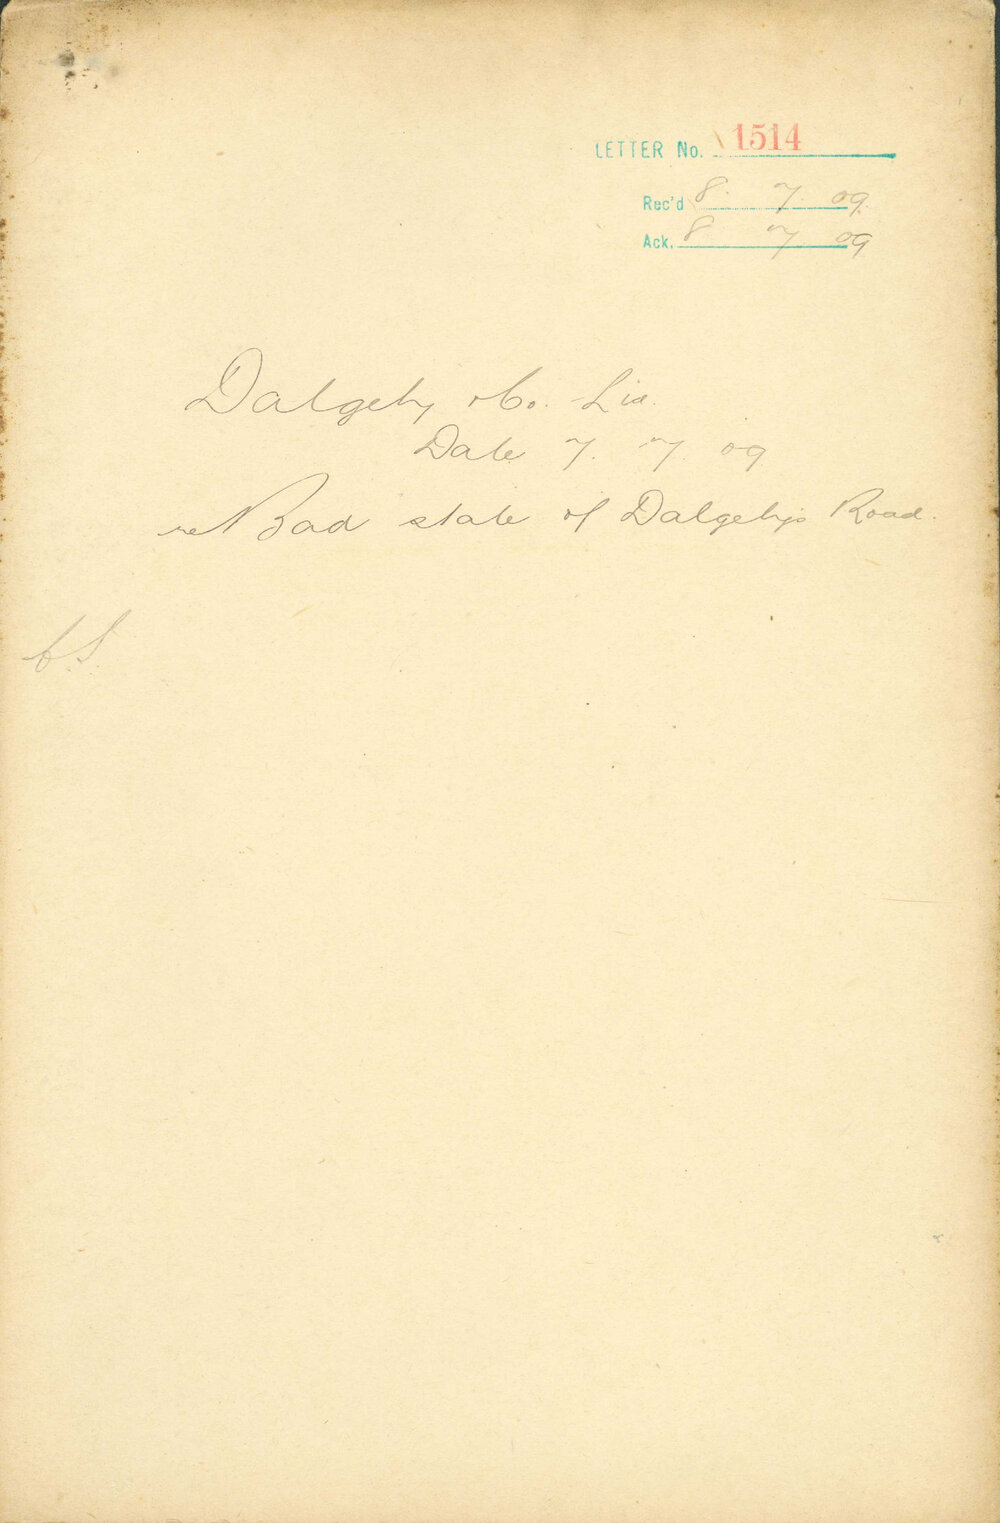 LETTER No. 1514
Rec'd 8. 7. 09.
Ack. 8 7. 09
Dalgety & Co. Ltd.
Date 7. 7. 09
re Bad state of Dalgety's Road.